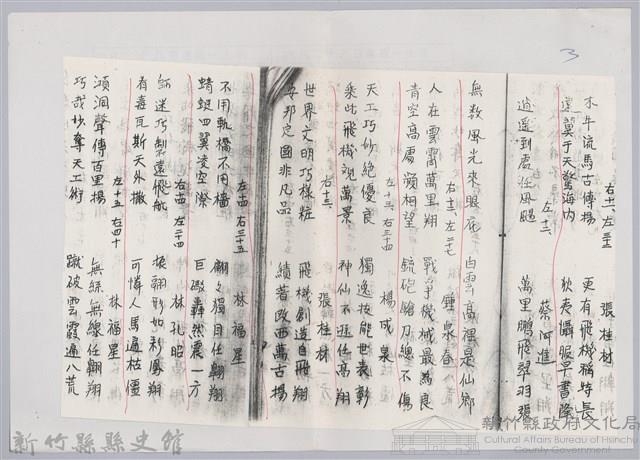 3
右十一、左三五 張桂材
木牛流馬古傳揚 更有飛機稱特長
遠翼于天驚海内 狄夷懾服早書降
左十六 蔡河進
逍遥到處任風颺 萬里鵬飛翠羽張
無数風光來眼底 白雲高裡是仙鄉
右十六、左二七 鍾泉春
人在雲霄萬里翔 戰爭機械最為良
青空高處凝相望 銃砲鎗刀總不傷
左十三、右三四 楊成泉
天工巧妙絶優良 獨逸技能世表彰
乘此飛機观萬景 神仙不遜任高翔
右十三 張桂林
世界文明巧様粧 飛機創造自飛翔
安邦定國非凡品 績著欧西萬古揚
左一四 右三十五 林福星
不用軌檔不用檣 翩々獨目任翺翔
蜻蜓四翼凌空際 巨砲轟然震一方
右一四 左二十四 林孔昭
新迷巧製遠飛航 振翮形如彩鳳翔
有毒瓦斯天外撒 可憐人馬遍枯僵
左十五、右四十 林福星
澒洞聲傳百里揚 無絲無線任翺翔
巧哉妙奪天工術 蹴破雲霞遍八荒
新竹縣縣史館
新竹縣政府文化局
Cultural Affairs Bureau of Hsinchu
County Government